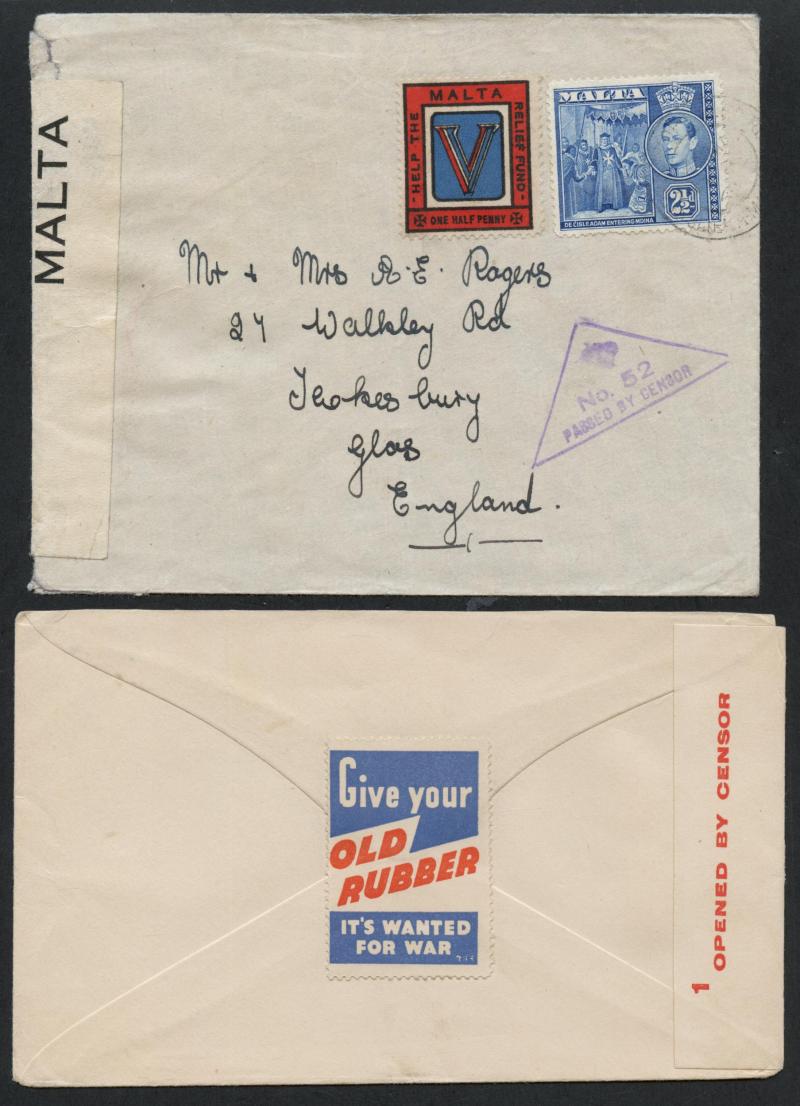 MALTA
MALTA
HELP THE
RELIEF FUND
V
ONE HALF PENNY
MALTA
2½d
DE L'ISLE ADAM ENTERING MDINA
Mr + Mrs A.E. Rogers
27 Walkley Rd
Tewkesbury
Glos
England.
No. 52
PASSED BY CENSOR
Give your
OLD
RUBBER
IT'S WANTED
FOR WAR
1 OPENED BY CENSOR